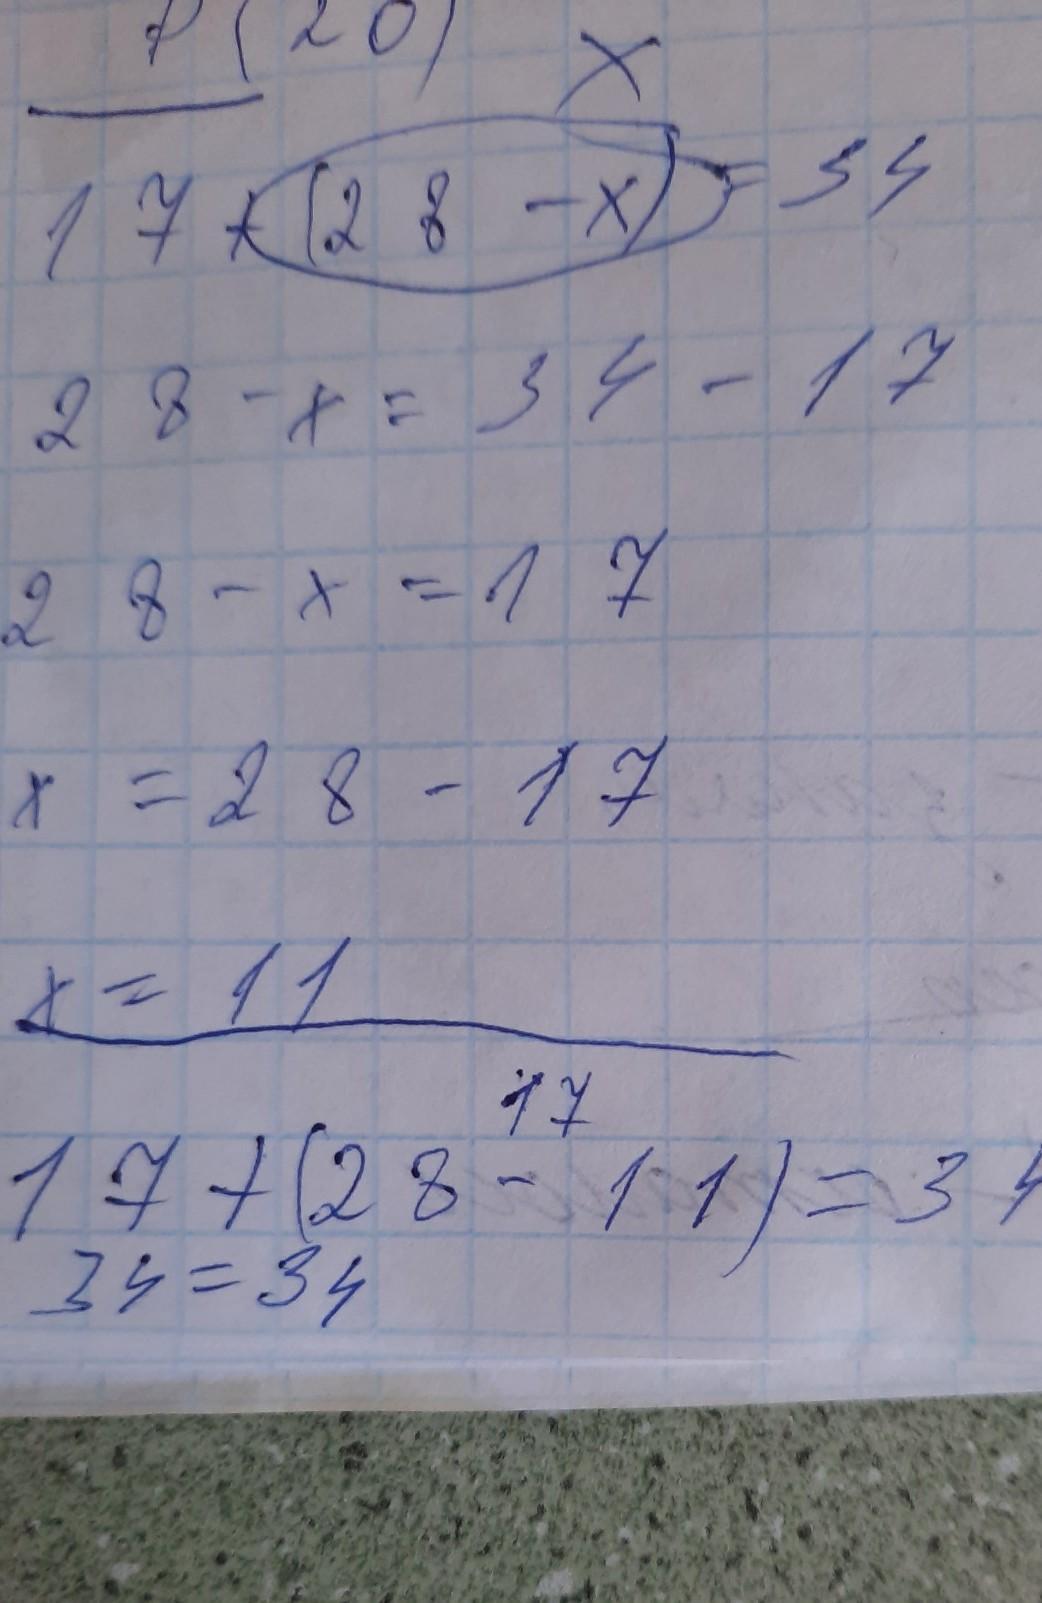 (20)
X
17+(28-x)=34
28-x=34-17
28-x=17
x=28-17
x=11
17
17+(28-11)=34
34=34